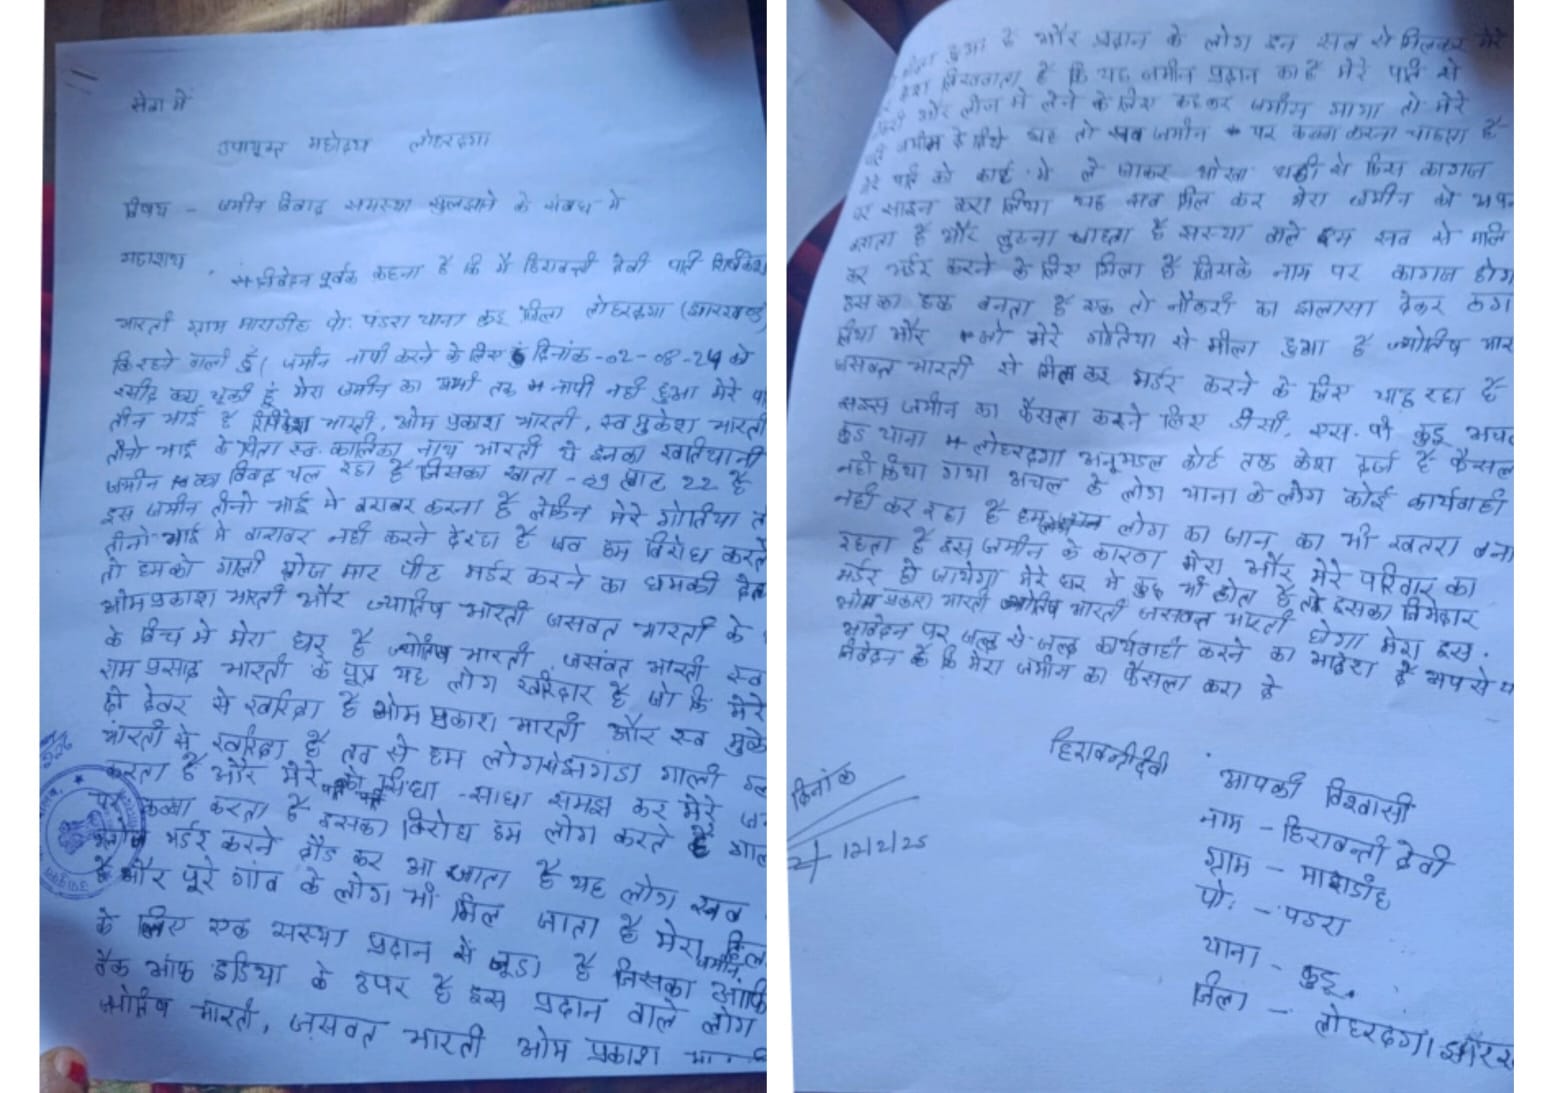 सेवा में
उपायुक्त महोदय लोहरदगा
विषय - जमीन विवाद समस्या सुलझाने के संबध मे
महाशय,
निवेदन पूर्वक कहना है कि मै हिरावन्ती देवी पति
भारती ग्राम माराडीह पो. पंडरा थाना कुडू जिला लोहरदगा (झारखण्ड)
कि रहने वाली हूँ। जमीन नापी करने के लिए दिनांक-02-08-24 को
रसीद करा चुकी हूं मेरा जमीन का अभी तक नापी नही हुआ मेरे
तीन भाई है भारती, ओम प्रकाश भारती, स्व मुकेश भारती
तीनो भाई के पिता स्व. कालिका नाथ भारती थे इनका खतियानी
जमीन का विवाद चल रहा है जिसका खाता - 29 प्लाट 22 है
इस जमीन तीनो भाई मे बराबर करना है लेकिन मेरे गोतिया
तीनो भाई मे बाराबर नही करने दे रहा है जब हम विरोध करते
तो हमको गाली गलोज मार पीट मर्डर करने का धमकी देता
ओम प्रकाश भारती और ज्योतिष भारती जसवंत भारती के
के बिच मे मेरा घर है ज्योतिष भारती, जसंवत भारती स्व
राम प्रसाद भारती के पुत्र यह लोग खरिदार है जो कि मेरे
दो देवर से खरिदा है ओम प्रकाश भारती और स्व मुके
भारती से खरिदा है तब से हम लोग गाली
करता है और मेरे पति को सिधा - साधा समझ कर मेरे
पर कब्जा करता है इसका विरोध हम लोग करते है
मर्डर करने दौड कर आ जाता है यह लोग सब
है और पूरे गांव के लोग भी मिल जाता है मेरा जमीन
के लिए एक संस्था प्रदान से जूडा है जिसका
बैंक ऑफ इंडिया के उपर है इस प्रदान वाले लोग
ज्योतिष भारती, जसवंत भारती ओम प्रकाश
हुआ है और प्रदान के लोग इन सब से मिलकर मेरे
है कि यह जमीन प्रदान का है मेरे पति से
और लीज मे लेने के लिए कहकर जमीन मागा तो मेरे
जमीन दे दिये यह तो सब जमीन पर कब्जा करना चाहता है
मेरे पति को कोर्ट मे ले जाकर धोखा धड़ी से किस कागज
पर साइन करा लिया यह सब मिल कर मेरा जमीन को
बताता है और लुटना चाहता है संस्था वाले इन सब से मिल
कर मर्डर करने के लिए मिला है जिसके नाम पर कागज होग
उसका हक बनता है एक तो नौकरी का झलासा देकर ठग
लिया और जो मेरे गोतिया से मीला हुआ है ज्योतिष भार
जसवंत भारती से मिल कर मर्डर करने के लिए चाह रहा है
जमीन का फैसला करने लिए डीसी, एस. पी कुडू अचल
कुडू थाना लोहरदगा अनूमडल कोर्ट तक केश दर्ज है फैसल
नही किया गया अचल के लोग थाना के लोग कोई कार्यवाही
नही कर रहा है हम लोग का जान का भी खतरा बना
रहता है इस जमीन के कारण मेरा और मेरे परिवार का
मर्डर हो जायेगा मेरे घर मे कुछ भी होता है तो इसका जिमेदार
ओम प्रकाश भारती ज्योतिष भारती जसवंत भारती होगा मेरा इस
आवेदन पर जल्द से जल्द कार्यवाही करने का आदेश दे आप से
निवेदन है कि मेरा जमीन का फैसला करा दे
हिरावन्ती देवी
दिनांक
12/2/25
आपकी विश्वासी
नाम - हिरावन्ती देवी
ग्राम - माराडीह
पो. - पडरा
थाना - कुडू
जिला - लोहरदगा